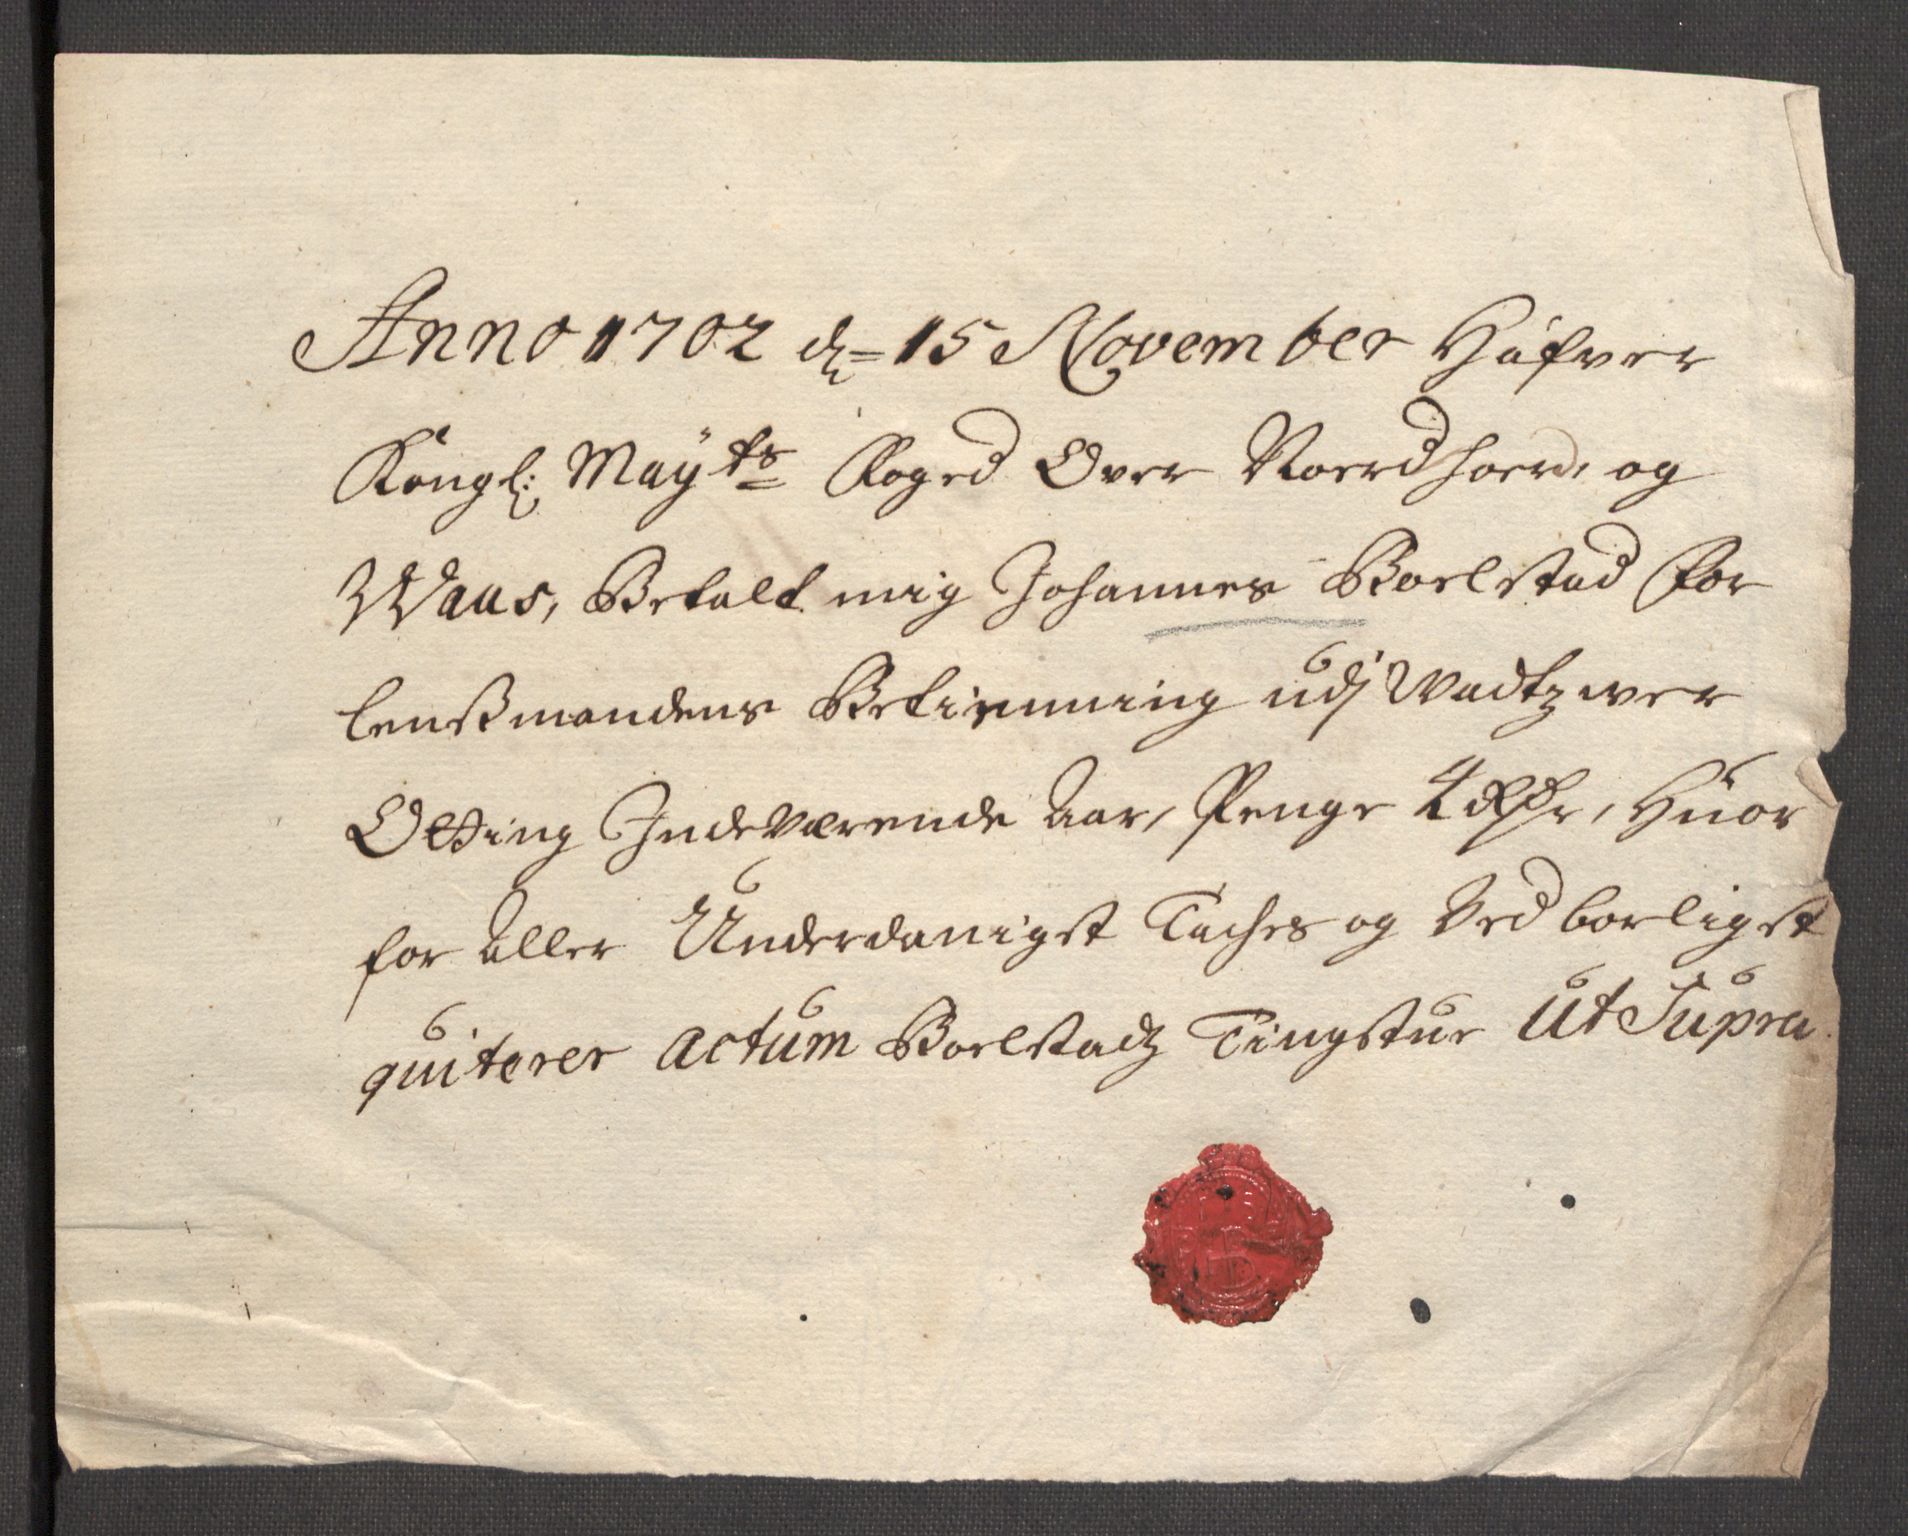 Anno 1702 d. 15 November Hafver
Kongl: Mayts Foged Over Noerdhoer, og
Waas, Betalt mig Johannes Boelstad for
lenßmandens Betienning udj Wadtzwer
Otting Indeværende Aar, Penge 4 Rdr, Huor
for aller Underdanigst Tackes og Ved borligst
quiterer Actum Boelstadtz Tingstue Ut Supra